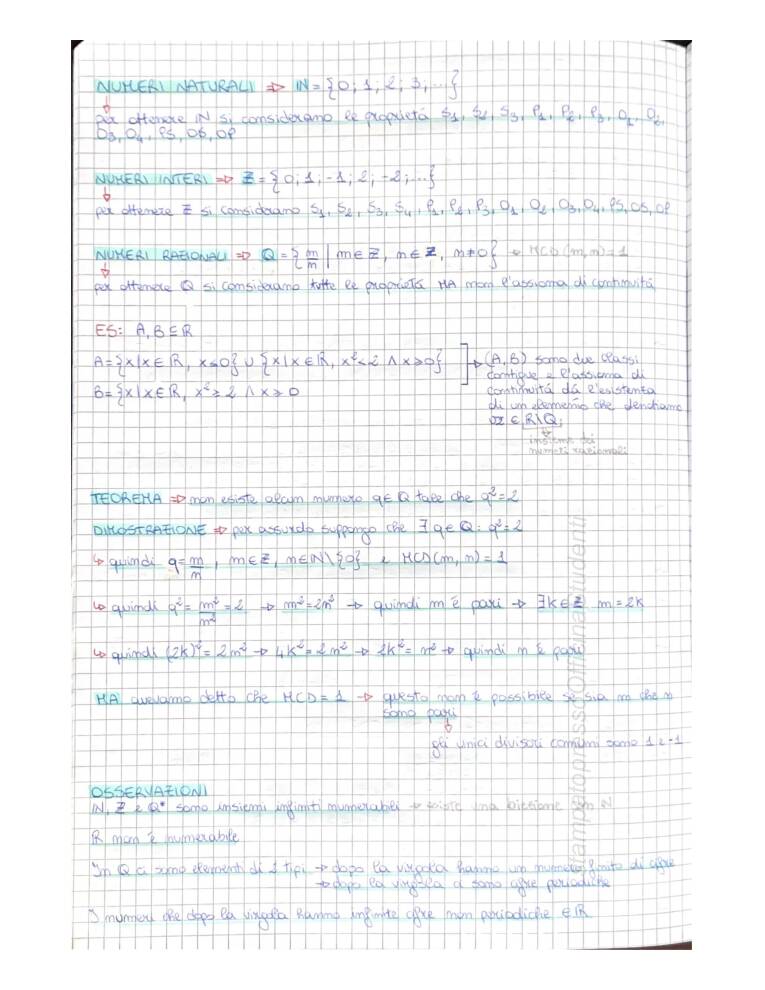 NUMERI NATURALI => IN = {0; 1; 2; 3; ...}
per ottenere IN si considerano le proprietà S1, S2, S3, P1, P2, P3, O1, O2,
O3, O4, PS, OS, OP
NUMERI INTERI => Z = {0; 1; -1; 2; -2; ...}
per ottenere Z si considerano S1, S2, S3, S4, P1, P2, P3, O1, O2, O3, O4, PS, OS, OP
NUMERI RAZIONALI => Q = {m/n | m∈Z, n∈Z, n≠0} → MCD(m,n)=1
per ottenere Q si considerano tutte le proprietà MA non l'assioma di continuità
ES: A, B ⊆ R
A = {x | x∈R, x≤0} ∪ {x | x∈R, x²<2 ∧ x>0}
B = {x | x∈R, x²≥2 ∧ x>0
→ (A, B) sono due classi
contigue e l'assioma di
continuità dà l'esistenza
di un elemento che denotiamo
√2 ∈ R\Q
insieme dei
numeri razionali
TEOREMA => non esiste alcun numero q∈Q tale che q²=2
DIMOSTRAZIONE => per assurdo suppongo che ∃ q∈Q: q²=2
↳ quindi q = m/n, m∈Z, n∈N\{0} e MCD(m, n) = 1
↳ quindi q² = m²/n² = 2 → m² = 2n² → quindi m è pari → ∃k∈Z m = 2k
↳ quindi (2k)² = 2n² → 4k² = 2n² → 2k² = n² → quindi n è pari
MA avevamo detto che MCD = 1 → questo non è possibile se sia m che n
sono pari
gli unici divisori comuni sono 1 e -1
OSSERVAZIONI
IN, Z e Q* sono insiemi infiniti numerabili → esiste una biezione con N
R non è numerabile
In Q ci sono elementi di 2 tipi → dopo la virgola hanno un numero finito di cifre
→ dopo la virgola ci sono cifre periodiche
I numeri che dopo la virgola hanno infinite cifre non periodiche ∈ R